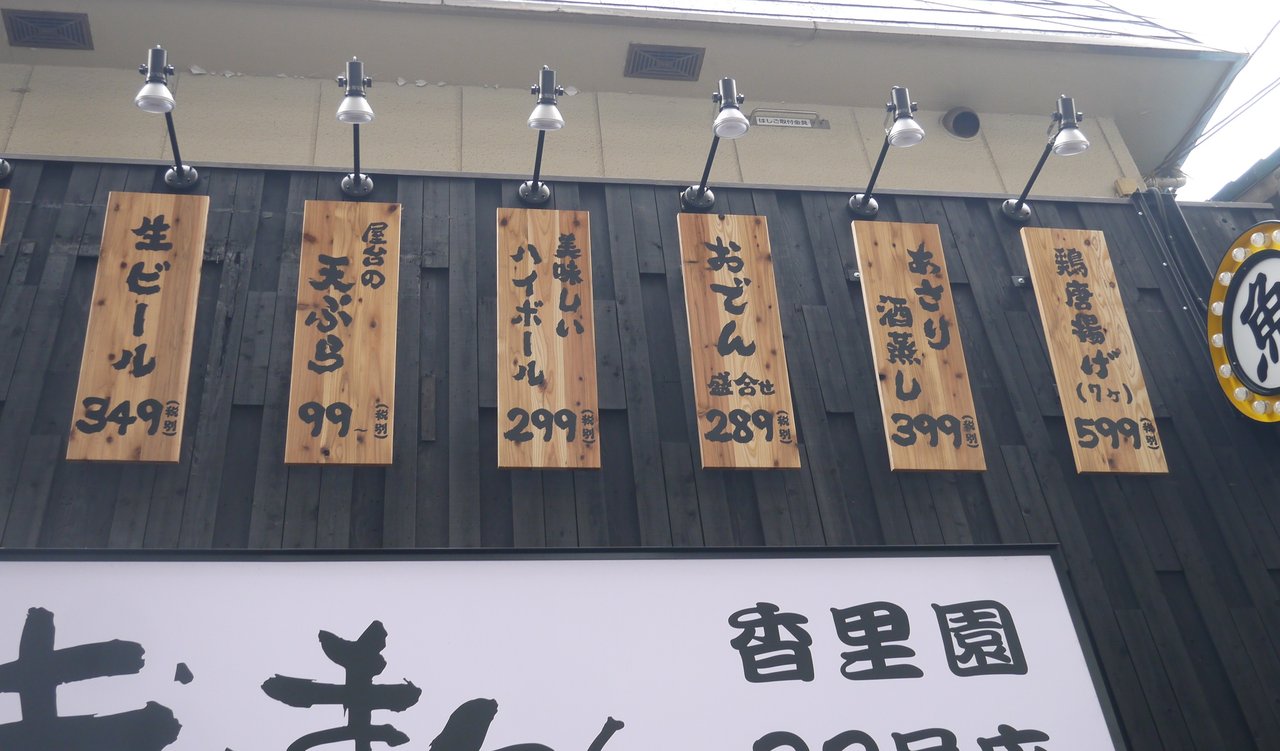 はしご取付金具
生ビール
349(税別)
屋台の
天ぷら
99~(税別)
美味しい
ハイボール
299(税別)
おでん
盛合せ
289(税別)
あさり
酒蒸し
399(税別)
鶏唐揚げ
(7ヶ)
599(税別)
魚
香里園